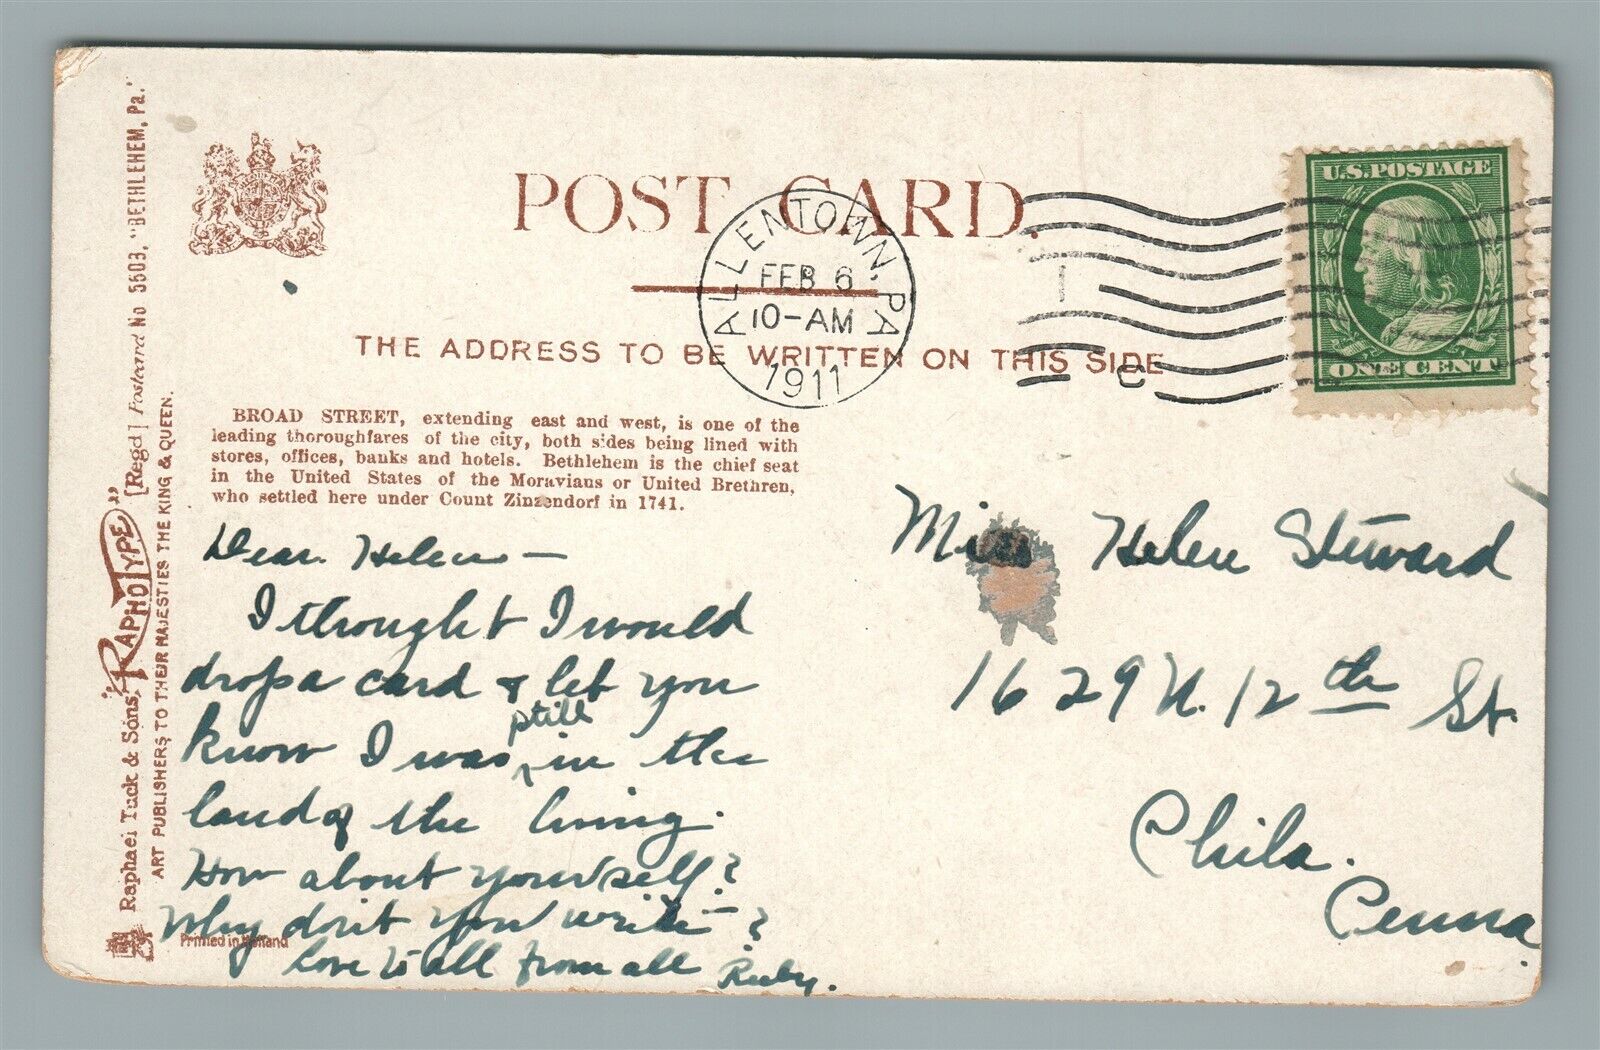 POST CARD.
U.S. POSTAGE
ONE CENT
ALLENTOWN, PA
FEB 6
10-AM
1911
1
C
THE ADDRESS TO BE WRITTEN ON THIS SIDE
BROAD STREET, extending east and west, is one of the
leading thoroughfares of the city, both sides being lined with
stores, offices, banks and hotels. Bethlehem is the chief seat
in the United States of the Moravians or United Brethren,
who settled here under Count Zinzendorf in 1741.
Dear Helen —
I thought I would
drop a card & let you
know I was still in the
land of the living.
How about yourself?
Why don't you write — ?
Love to all from all Ruby.
Miss Helen Steward
1629 N. 12th St.
Phila.
Penna.
Raphael Tuck & Sons' "RAPHOTYPE" [Regd] Postcard No 5503, "BETHLEHEM, Pa."
ART PUBLISHERS TO THEIR MAJESTIES THE KING & QUEEN.
Printed in Holland